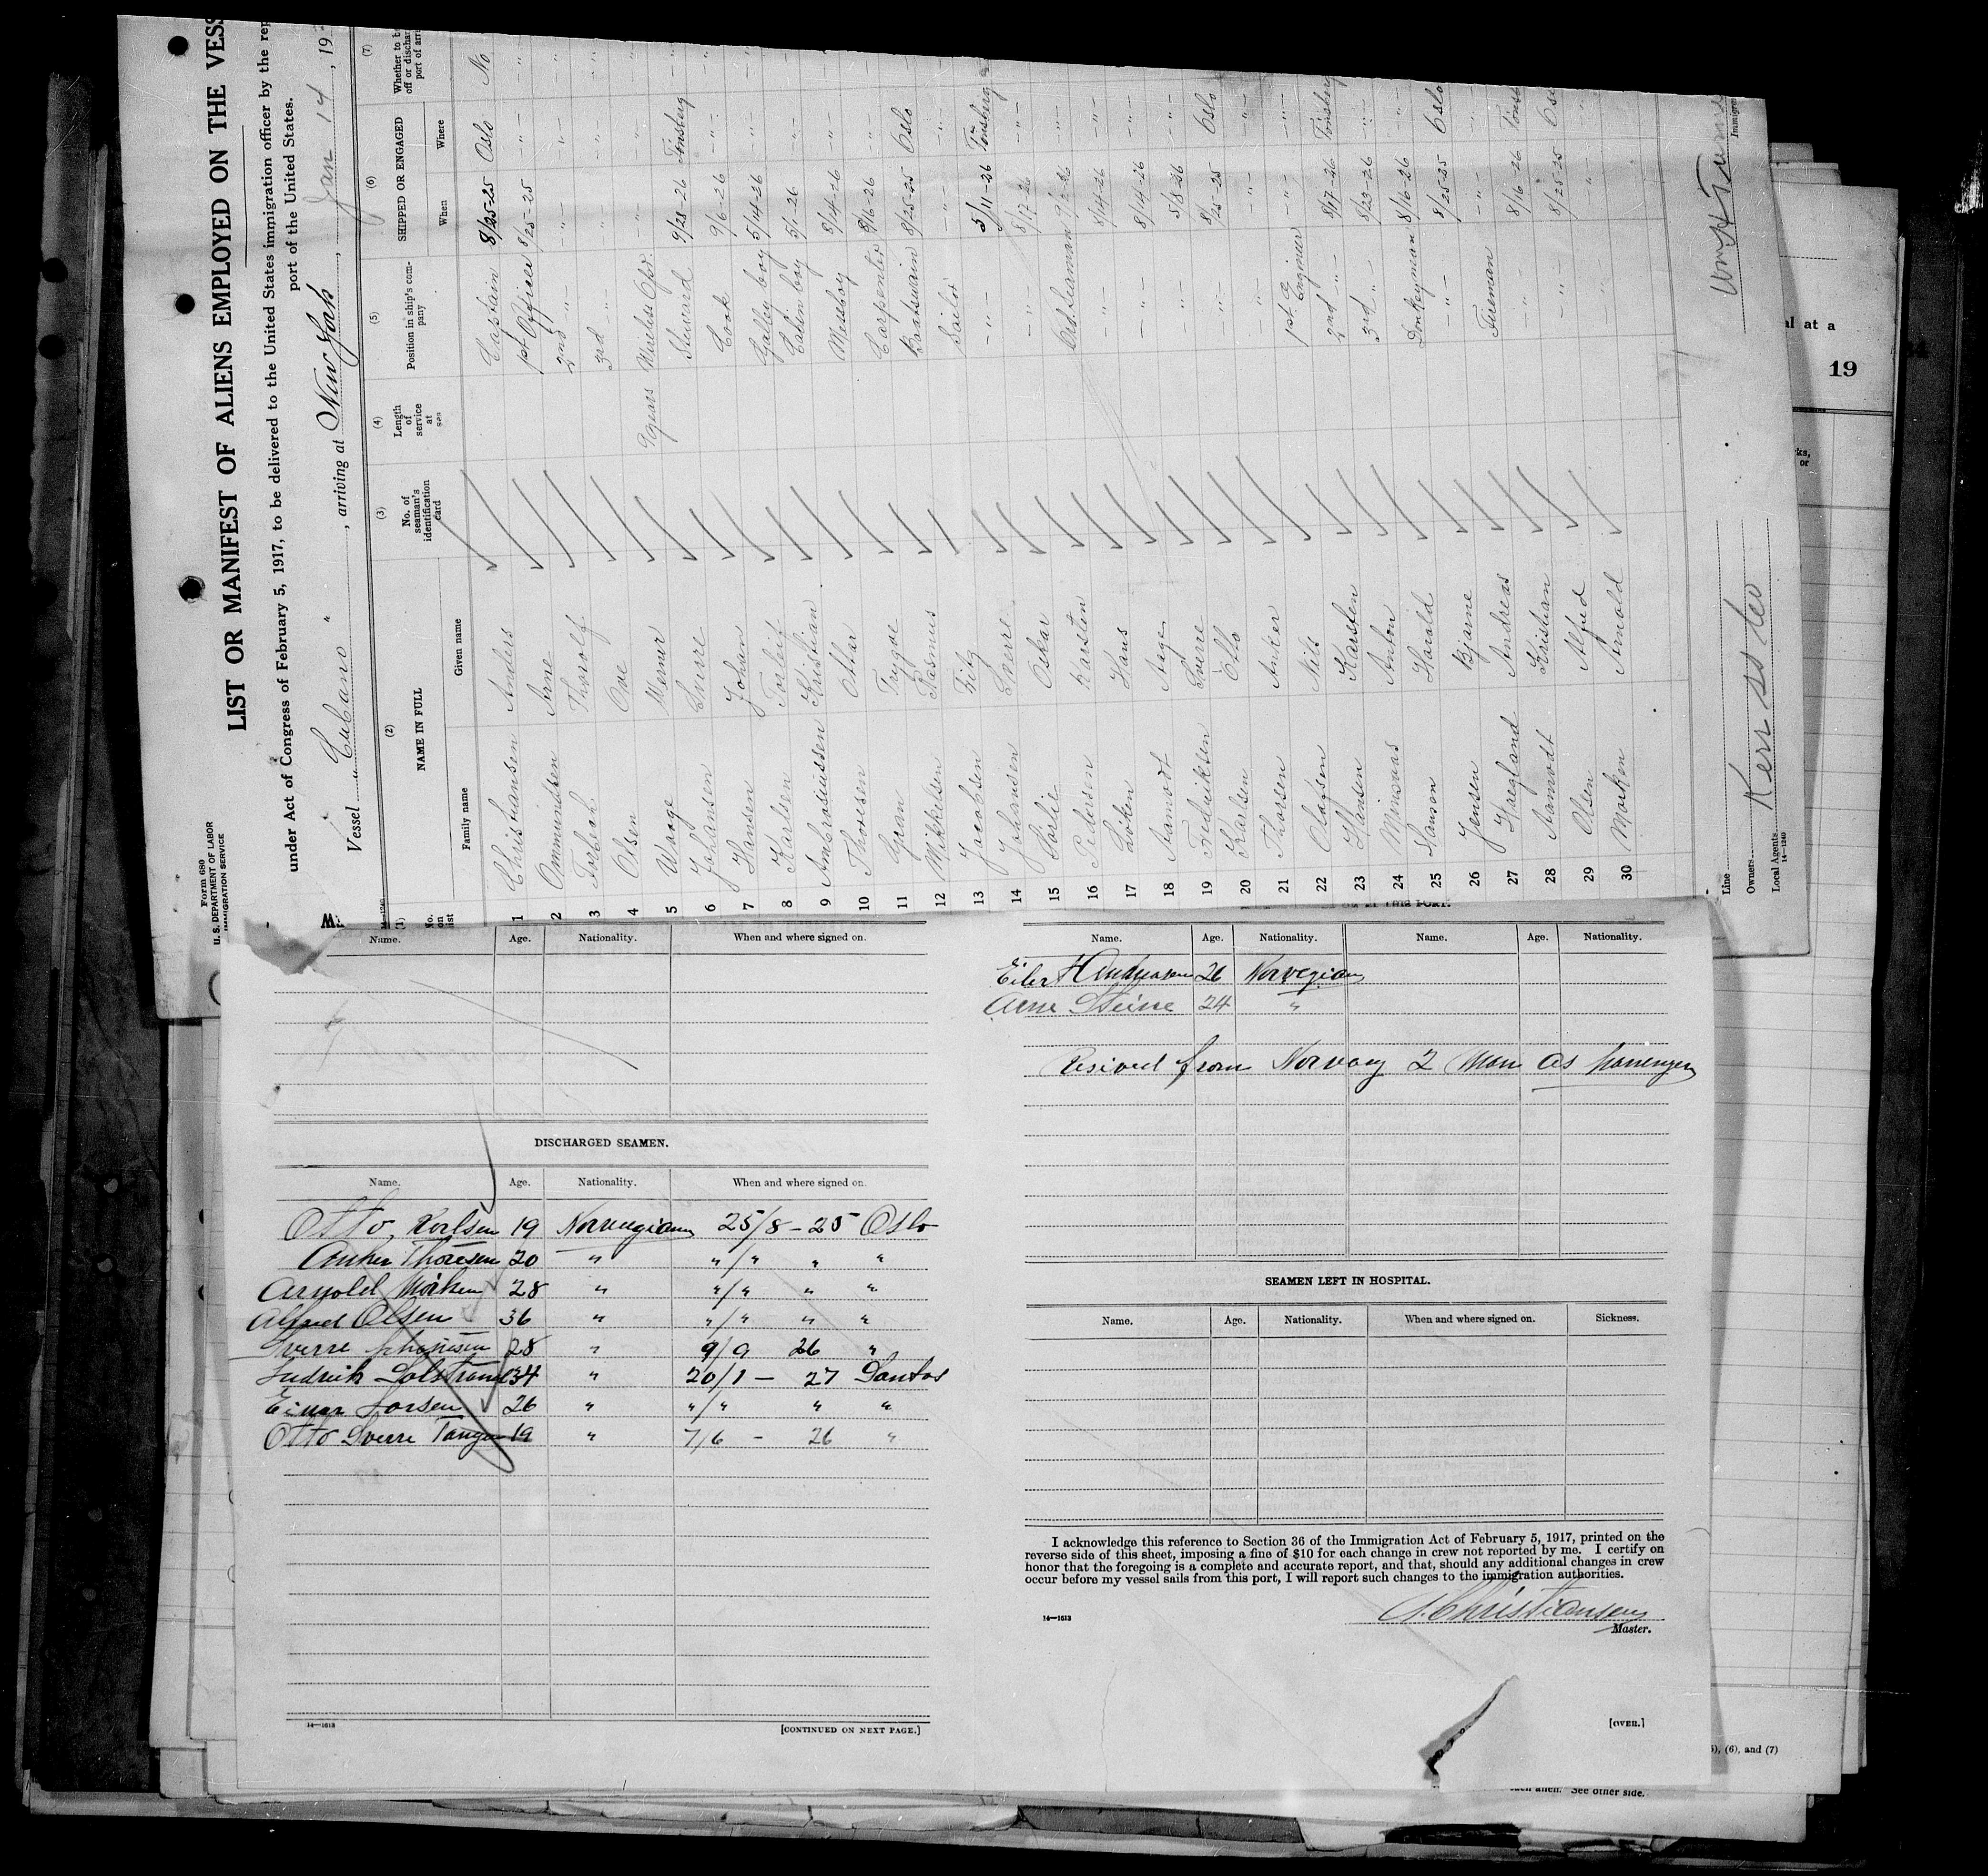 Form 680
U. S. DEPARTMENT OF LABOR
IMMIGRATION SERVICE
LIST OR MANIFEST OF ALIENS EMPLOYED ON THE VESS
under Act of Congress of February 5, 1917, to be delivered to the United States immigration officer by the rep
port of the United States.
Vessel " Cubano " , arriving at New York , Jan 14 , 19
(1) (2) (3) (4) (5) (6) (7)
No. on list NAME IN FULL No. of seaman's identification card Length of service at sea Position in ship's company SHIPPED OR ENGAGED Whether to b off or dischar port of arri
Family name Given name When Where
1 Christiansen Anders Captain 8/25-25 Oslo No
2 Ommundsen Arne 1st Officer 8/25-25 -"- -"-
3 Thorolf 2nd -"- -"- -"- -"-
4 Olsen Ove 3rd -"- -"- -"-
5 Waage Werner 7 years Wireless Opr. -"- -"-
6 Johansen Sverre Steward 9/28-26 Tönsberg -"-
7 Hansen Johan Cook 9/6-26 -"- -"-
8 Karlsen Torleif Galley boy 5/14-26 -"-
9 Ambrosiussen Kristian Cabin boy 5/1-26 -"-
10 Thoresen Ottar Messboy 8/14-26 -"-
11 Gran Trygve Carpenter 9/16-26 "
12 Mikkelsen Rasmus Boatswain 8/25-25 Oslo
13 Jacobsen Fitz Sailor -"- -"-
14 Johansen Sverre -"- 5/11-26 Tönsberg
15 Sorlie Oskar -"- 8/17-26 -"-
16 Pedersen Karsten Ord. Seaman 9/2-26 -"-
17 Löken Hans -"- 8/14-26 -"-
18 Aamodt Aage -"- 8/14-26 -"-
19 Fredriksen Sverre -"- 5/8-26 -"-
20 Karlsen Otto -"- 8/25-25 Oslo
21 Thorsen Anker -"- -"- -"-
22 Olafsen Nils 1st Engineer -"- -"-
23 Hansen Karsten 2nd -"- 8/17-26 Tönsberg
24 Anton 3rd " 8/23-26 -"-
25 Harald Donkeyman 8/16-26 -"-
26 Jensen Bjarne -"- 8/25-25 Oslo
27 Andreas Fireman -"- -"-
28 Aamodt Kristian -"- 8/16-26 Tönsb
29 Olsen Alfred -"- 8/25-25 Osl
30 Morken Arnold -"- " "
Line
Owners Kerr SS Co
Local Agents
14—1240
Immigra
al at a
19
ks,
or
Name. Age. Nationality. When and where signed on.
DISCHARGED SEAMEN.
Name. Age. Nationality. When and where signed on.
Otto, Karlsen 19 Norwegian 25/8 - 25 Oslo
Anker Thoresen 20 " "/" " "
Arnold Morken 28 " "/" " "
Alfred Olsen 36 " "/" " "
Sverre Johansen 28 " 9/9 26 "
34 " 20/1 - 27 Santos
Einar Larsen 26 " "/" " "
Otto Sverre Tangen 19 " 7/6 - 26 "
14—1613
[CONTINUED ON NEXT PAGE.]
AT THIS PORT.
Name. Age. Nationality. Name. Age. Nationality.
Eilert Andreasen 26 Norvegian
Arne 24 "
Resived from Norway 2 Man as Passenger
SEAMEN LEFT IN HOSPITAL.
Name. Age. Nationality. When and where signed on. Sickness.
I acknowledge this reference to Section 36 of the Immigration Act of February 5, 1917, printed on the
reverse side of this sheet, imposing a fine of $10 for each change in crew not reported by me. I certify on
honor that the foregoing is a complete and accurate report, and that, should any additional changes in crew
occur before my vessel sails from this port, I will report such changes to the immigration authorities.
A. Christiansen
Master.
14—1613
[OVER.]
5), (6), and (7)
such alien. See other side.